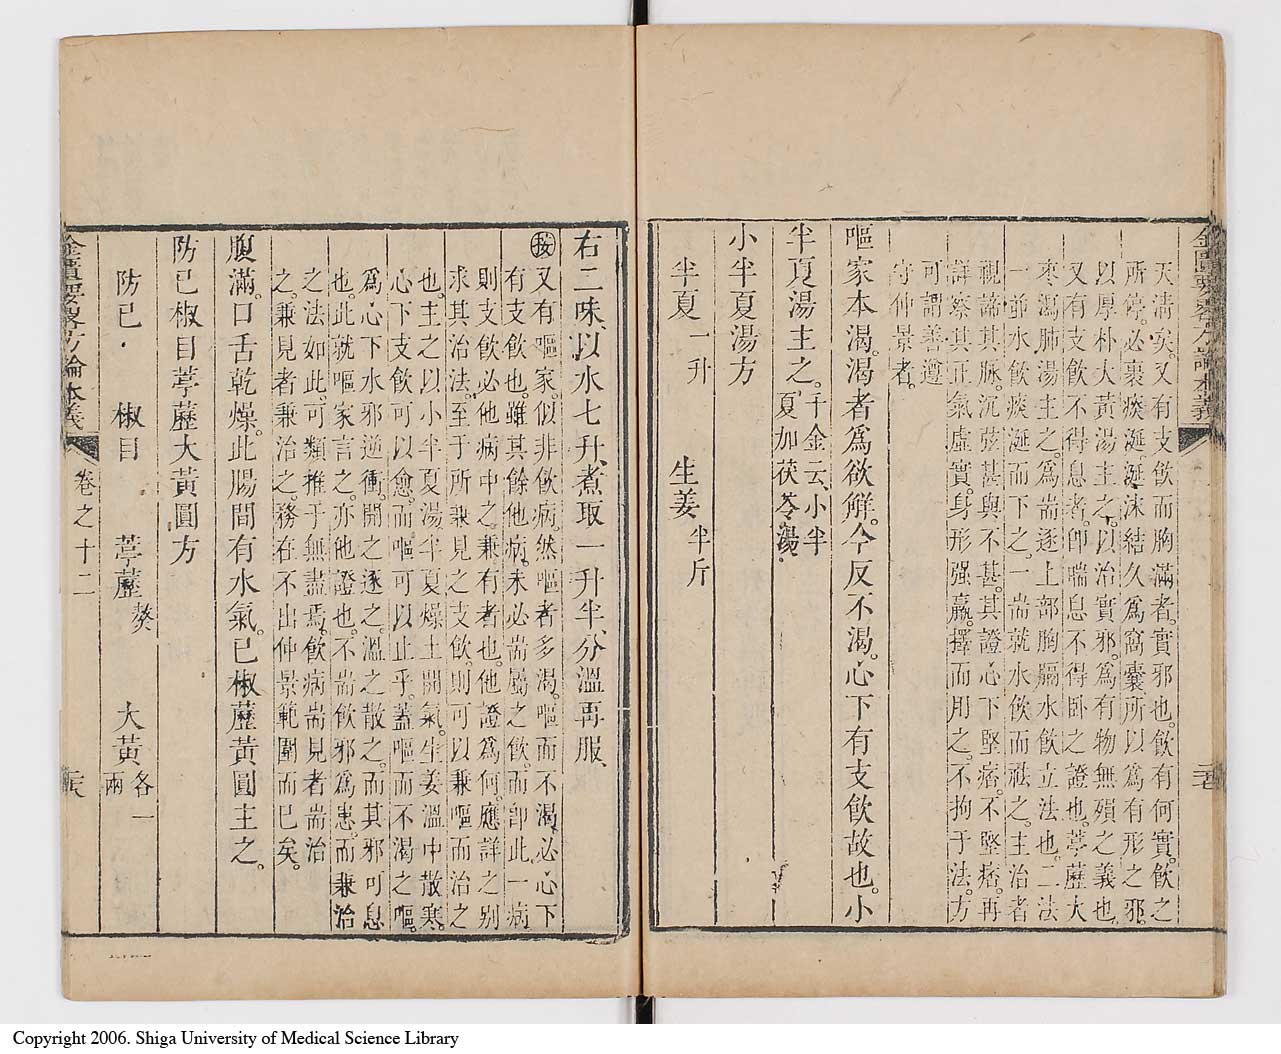 天清矣又有支飲而胸滿者實邪也飲有何實飲之
所停必裹痰涎涎沫結久為窩囊所以為有形之邪
以厚朴大黃湯主之以治實邪為有物無殞之義也
又有支飲不得息者即喘息不得卧之證也葶藶大
棗瀉肺湯主之為耑逐上部胸膈水飲立法也二法
一耑水飲痰涎而下之一耑就水飲而祛之主治者
視諦其脉沉弦甚與不甚其證心下堅痞不堅痞再
詳察其正氣虛實身形强羸擇而用之不拘于法方
可謂善遵
守仲景者
嘔家本渴渴者為欲解今反不渴心下有支飲故也小
半夏湯主之千金云小半
夏加茯苓湯
小半夏湯方
半夏一升 生姜半斤
右二味以水七升煮取一升半分溫再服
按又有嘔家似非飲病然嘔者多渴嘔而不渴必心下
有支飲也雖其餘他病未必耑屬之飲而即此一病
則支飲必他病中之兼有者也他證為何應詳之别
求其治法至于所兼見之支飲則可以兼嘔而治之
也主之以小半夏湯半夏燥土開氣生姜溫中散寒
心下支飲可以愈而嘔可以止乎蓋嘔而不渴之嘔
為心下水邪逆衝開之逐之溫之散之而其邪可息
也此就嘔家言之亦他證也不耑飲邪為患而兼治
之法如此可類推于無盡焉飲病耑見者耑治
之兼見者兼治之務在不出仲景範圍而已矣
腹滿口舌乾燥此腸間有水氣已椒藶黃圓主之
防已椒目葶藶大黃圓方
防已 椒目 葶藶熬 大黃各一兩
金匱要略方論本義 卷之十二
Copyright 2006. Shiga University of Medical Science Library